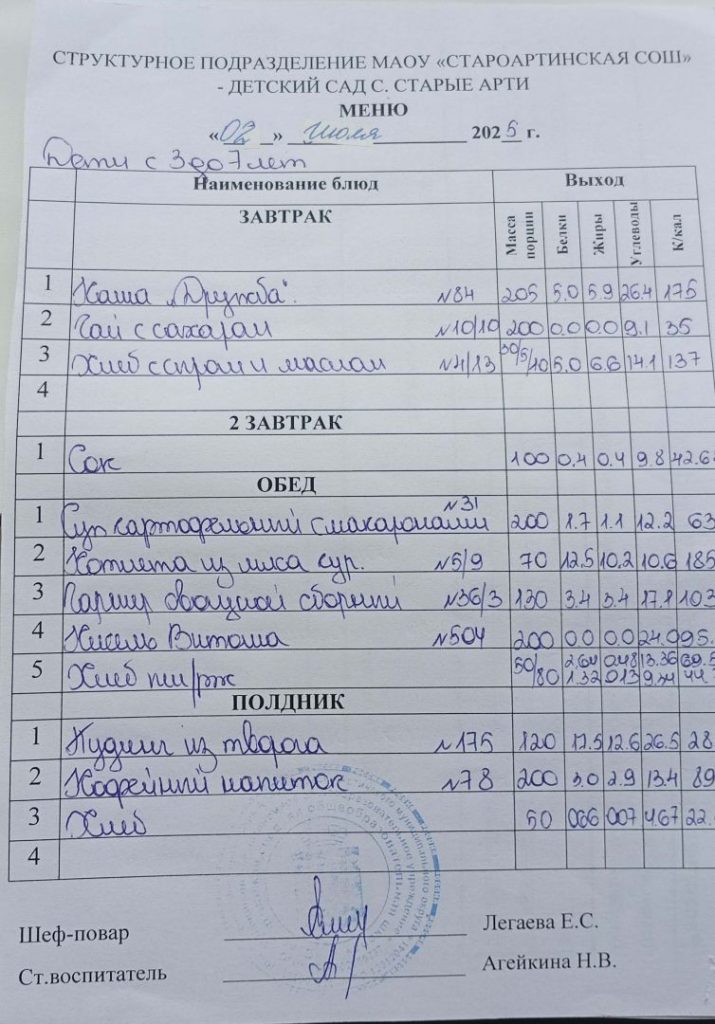 СТРУКТУРНОЕ ПОДРАЗДЕЛЕНИЕ МАОУ «СТАРОАРТИНСКАЯ СОШ»
- ДЕТСКИЙ САД С. СТАРЫЕ АРТИ
МЕНЮ
«02» июля 2025 г.
Дети с 3 до 7 лет
Наименование блюд Выход
ЗАВТРАК Масса порции Белки Жиры Углеводы К/кал
1 Каша „Дружба". №84 205 5.0 5.9 26.4 175
2 Чай с сахаром №10/10 200 0.0 0.0 9.1 35
3 Хлеб с сыром и маслом №4/13 30/5/40 5.0 6.6 14.1 137
4
2 ЗАВТРАК
1 Сок 100 0.4 0.4 9.8 42.6
ОБЕД
1 Суп картофельный с макаронами №31 200 1.7 1.1 12.2 63
2 Котлета из мяса кур. №5/9 70 12.5 10.2 10.6 185
3 Гарнир овощной сборный №36/3 130 3.4 3.4 17.1 103
4 Кисель Витоша №504 200 0.0 0.0 24.0 95.
5 Хлеб пш/рж 50/80 2,64 0.48 13.36 69.5
1.32 0.13 9.34 44.
ПОЛДНИК
1 Пудинг из творога №175 120 17.5 12.6 26.5 28
2 Кофейный напиток №78 200 3.0 2.9 13.4 89
3 Хлеб 50 0.66 0.07 4.67 22.
4
Шеф-повар Легаева Е.С.
Ст.воспитатель Агейкина Н.В.